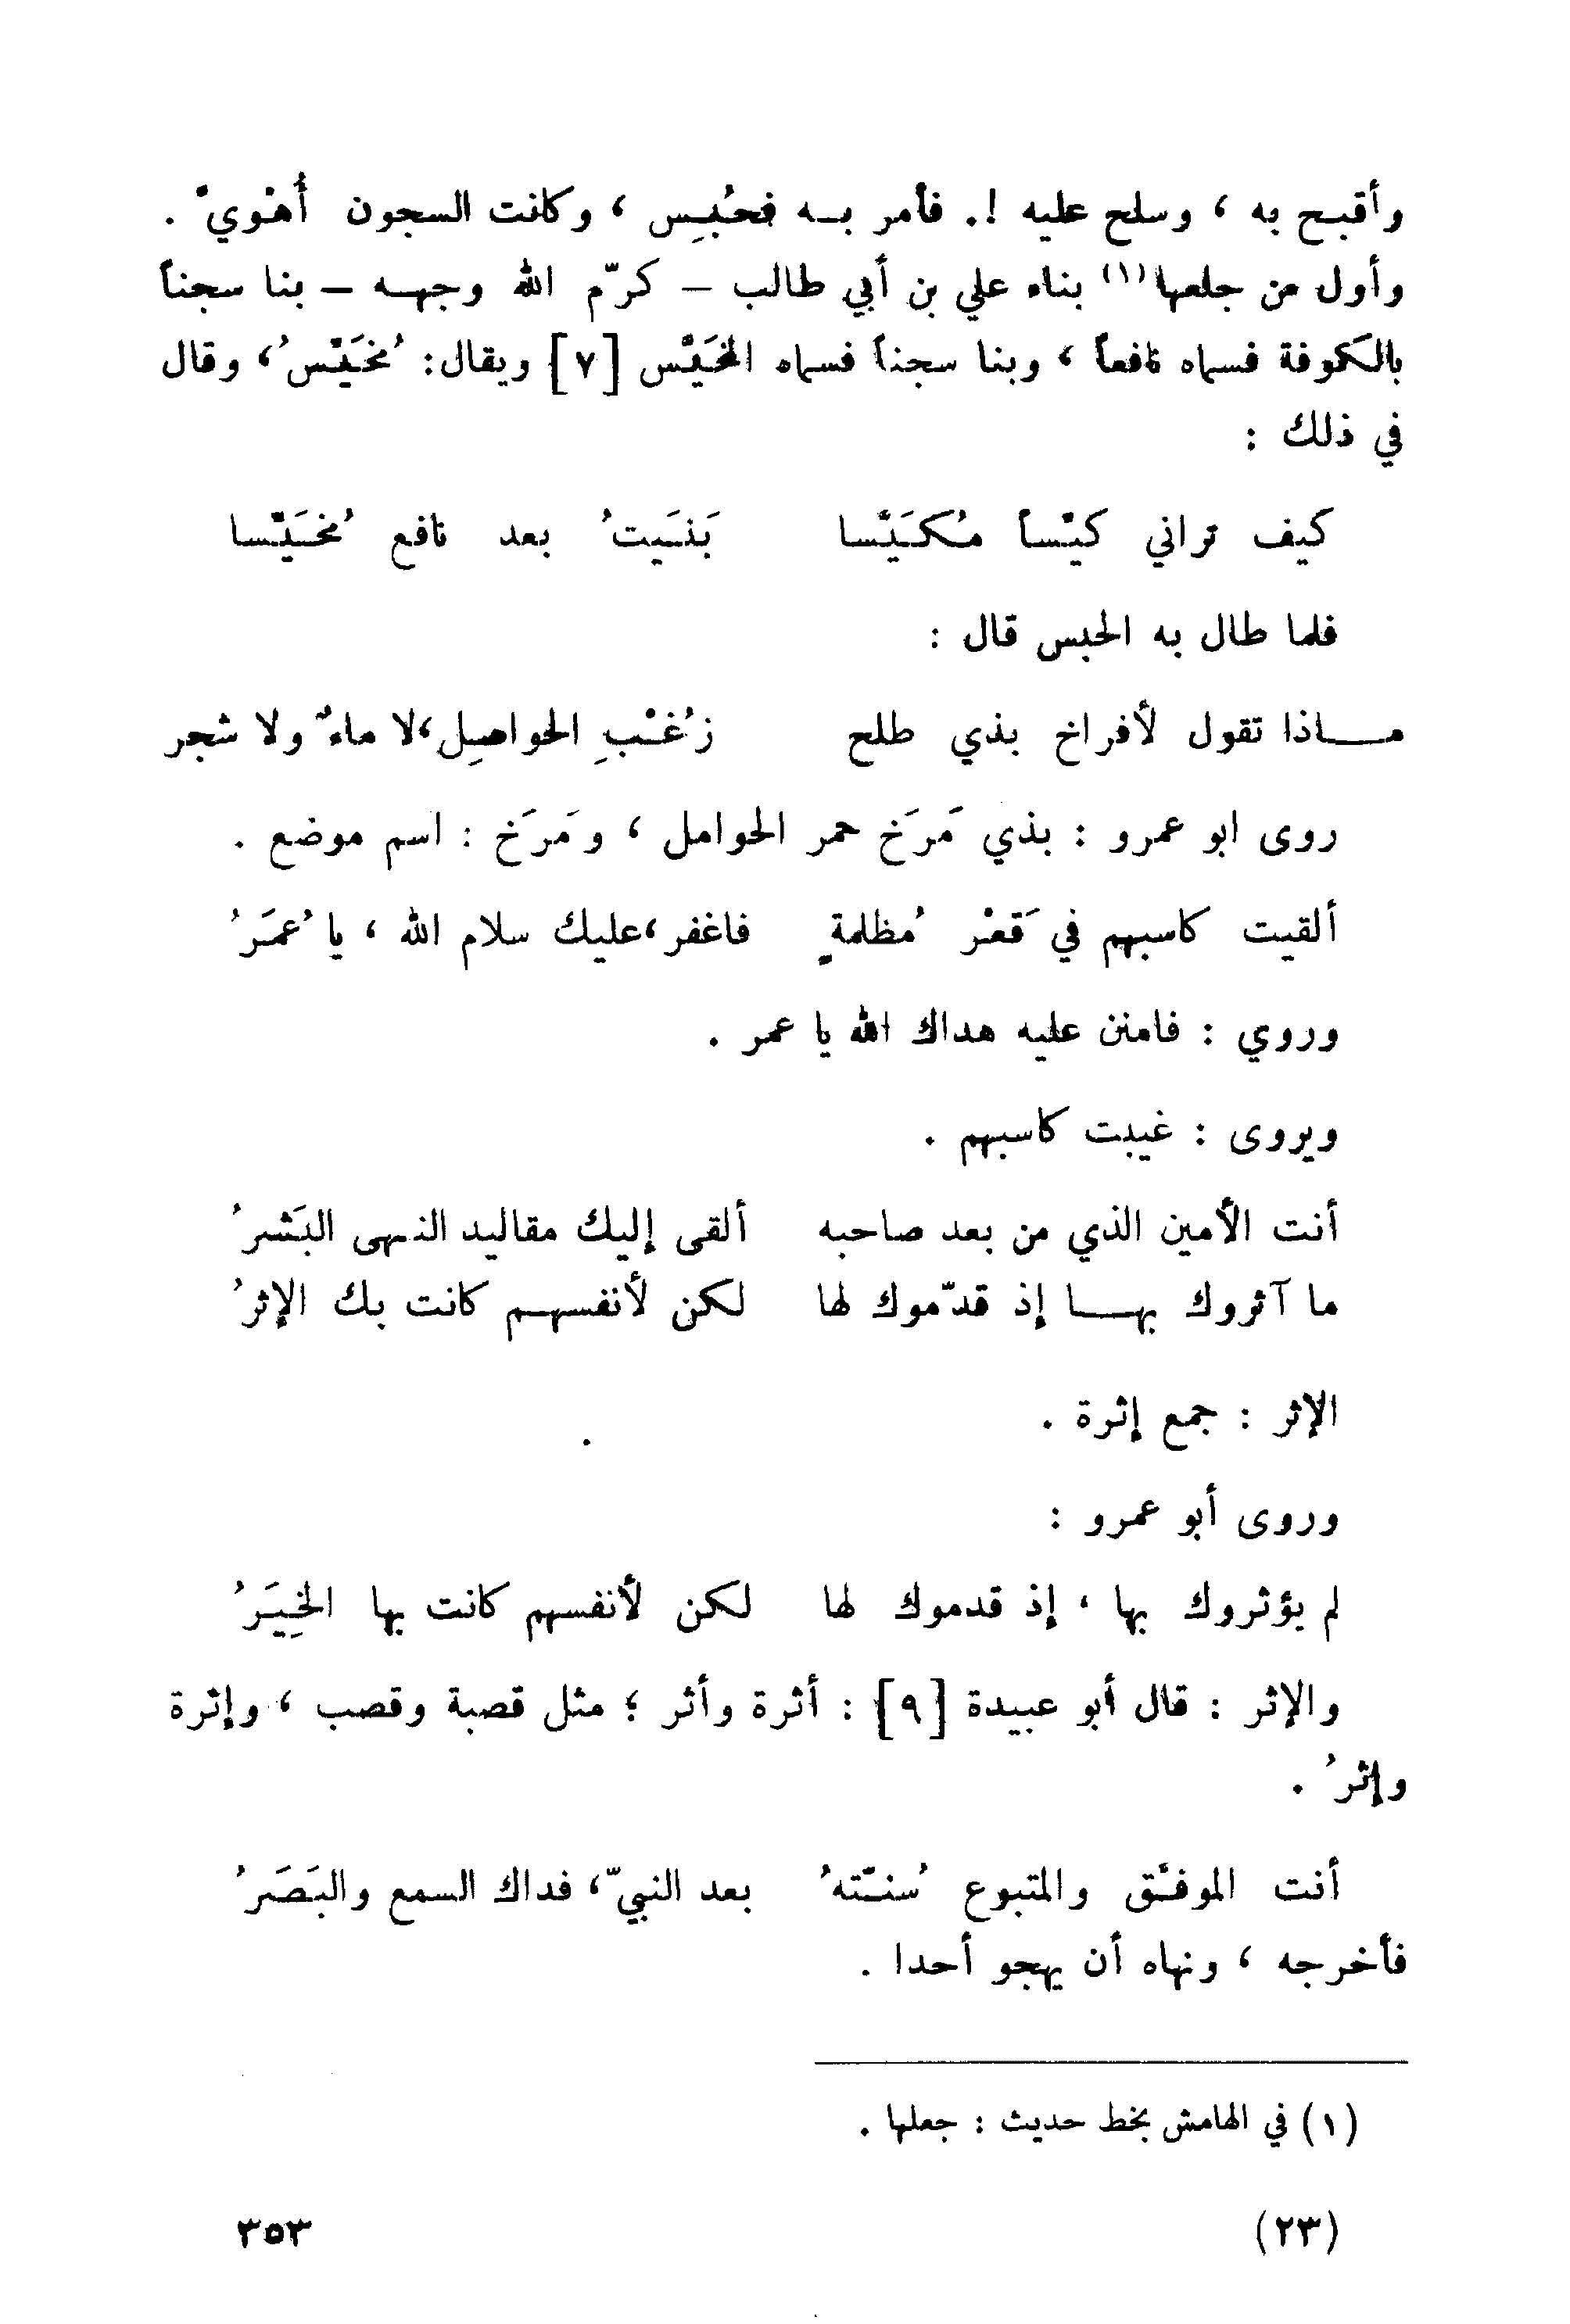 وأقبح به ، وسلح عليه !. فأمر به فحُبِس ، وكانت السجون أُهْويّ .
وأول من جلعها(١) بناء علي بن أبي طالب – كرّم الله وجهه – بنا سجناً
بالكوفة فسماه نافعاً ، وبنا سجناً فسماه المخَيّس [٧] ويقال: مُخَيّسُ، وقال
في ذلك :
كيف تراني كيّساً مُكَيَّسا بَنَيتُ بعد نافع مُخَيّسا
فلما طال به الحبس قال :
ماذا تقول لأفراخ بذي طلح زُغْبِ الحواصِل، لا ماءٌ ولا شجر
روى ابو عمرو : بذي مَرَخ حمر الحوامل ، ومَرَخ : اسم موضع .
ألقيت كاسبهم في قَعْر مُظلمةٍ فاغفر، عليك سلام الله ، يا عُمَرُ
وروي : فامنن عليه هداك الله يا عمر .
ويروى : غيبت كاسبهم .
أنت الأمين الذي من بعد صاحبه ألقى إليك مقاليد النهى البَشرُ
ما آثروك بها إذ قدّموك لها لكن لأنفسهم كانت بك الإثرُ
الإثر : جمع إثرة .
وروى أبو عمرو :
لم يؤثروك بها ، إذ قدموك لها لكن لأنفسهم كانت بها الخِيَرُ
والإثر : قال أبو عبيدة [٩] : أثرة وأثر ؛ مثل قصبة وقصب ، وإثرة
وإثرُ .
أنت الموفّق والمتبوع سُنّتهُ بعد النبيّ، فداك السمع والبَصَرُ
فأخرجه ، ونهاه أن يهجو أحدا .
(١) في الهامش بخط حديث : جعلها .
(٢٣) ٣٥٣